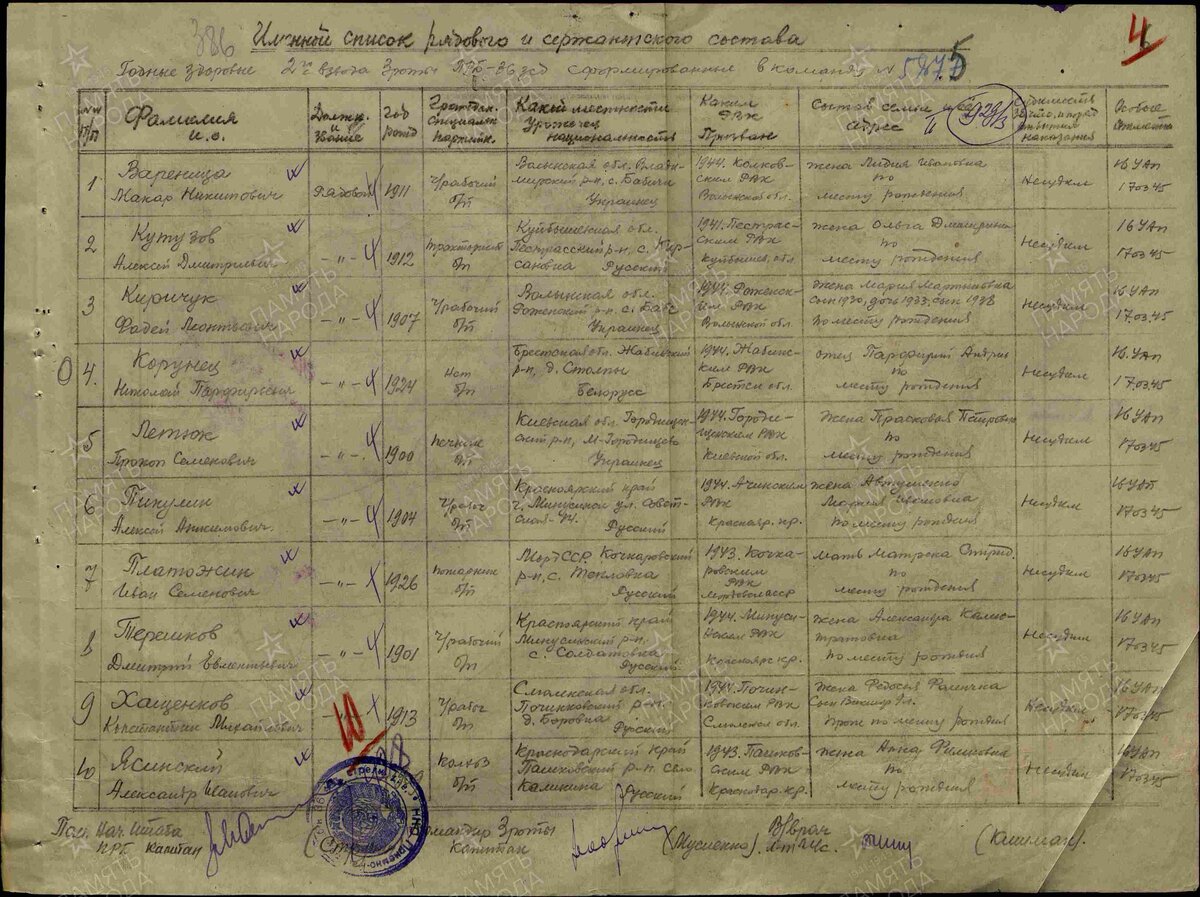 386 Именной список рядового и сержантского состава 4
Годные здоровые 2го взвода 3 роты ПРБ-86 зсд сформированные в команду № 5875
№№ п/п
Фамилия
и. о.
Должн. и звание
Год рожд
Граждан. специальн партийн.
Какой местности
Уроженец
национальность
Каким
РВК
Призван
Состав семьи и её
адрес
1
Вареница
Макар Никитович
Рядовой
1911
Ч/рабочий
б/п
Волынская обл. Влади-
мирский р-н, с. Бабичи
Украинец
1944. Колков-
ским РВК
Волынской обл.
жена Лидия Ивановна
по
месту рождения
Несудим
16 УАП
170345
2
Кутузов
Алексей Дмитриевич
-"-
1912
тракторист
б/п
Куйбышевская обл.
Пестравский р-н, с. Кир-
сановка Русский
1941. Пестрав-
ским РВК
Куйбышев. обл
жена Ольга Дмитриевна
по
месту рождения
Несудим
16 УАП
170345
3
Киричук
Фадей Леонтьевич
-"-
1907
Ч/рабочий
б/п
Волынская обл.
Украинец
1944.
РВК
Волынской обл.
жена Мария Мартыновна
сын 1930, дочь 1933, сын 1938
по месту рождения
Несудим
16 УАП
17.0345
4.
Корунец
Николай Парфирьевич
-"-
1924
Нет
б/п
Брестская обл. Жабинский
р-н, д. Столпы
Белорус
1944. Жабин-
ским РВК
Брестск обл.
отец Парфирий Андрее
по
месту рождения
Несудим
16 УАП
170345
5
Летюк
Прокоп Семенович
-"-
1900
печник
б/п
Киевская обл. Городищен-
ский р-н, М-Городищево
Украинец
1944. Городи-
щенским РВК
Киевской обл.
жена Прасковья Петровна
по
месту рождения
Несудим
16 УАП
170345
6
Пикулин
Алексей Анисимович
-"-
1904
Ч/рабоч
б/п
Красноярский край
г. Минусинск ул. Совет-
ская-44.
Русский
1944. Ачинским
РВК
Краснояр. кр.
жена
Мария Ивановна
по месту рождения
Несудим
16 УАП
170345
7
Платожкин
Иван Семенович
-"-
1926
пожарник
б/п
МордССР. Кочкуровский
р-н, с. Тепловка
Русский
1943. Кочку-
ровским
РВК
Мордовск асср
мать Матрена
по
месту рождения
Несудим
16 УАП
170345
8
Терешков
Дмитрий Евментьевич
-"-
1901
Ч/рабочий
б/п
Красноярский край
Минусинский р-н
с. Солдатовка
Русский
1944. Минуси-
нским РВК
Красноярск кр.
жена Александра Калис-
тратовна
по месту рождения
Несудим
16 УАП
170345
9
Хащенков
Константин Михайлович
1913
Ч/рабоч
б/п
Смоленская обл.
Починковский р-н.
д. Боровка
Русский
1944. Почин-
ковским РВК
Смоленск обл.
жена Федосья Фоминична
Сын Виктор
Прож по месту рождения
Несудим
16 УАП
170345
10
Ясинский
Александр Иванович
Колхоз
б/п
Краснодарский край
Пашковский р-н село
Калинина Русский
1943. Пашков-
ским РВК
Краснодар. кр.
жена Анна Филиповна
по
месту рождения
Несудим
16 УАП
170345
10
Пом. Нач. Штаба
ПРБ Капитан
Командир 3 роты
Капитан
(Мусиенко)
В/врач
л-т м/с.
ПАМЯТЬ НАРОДА